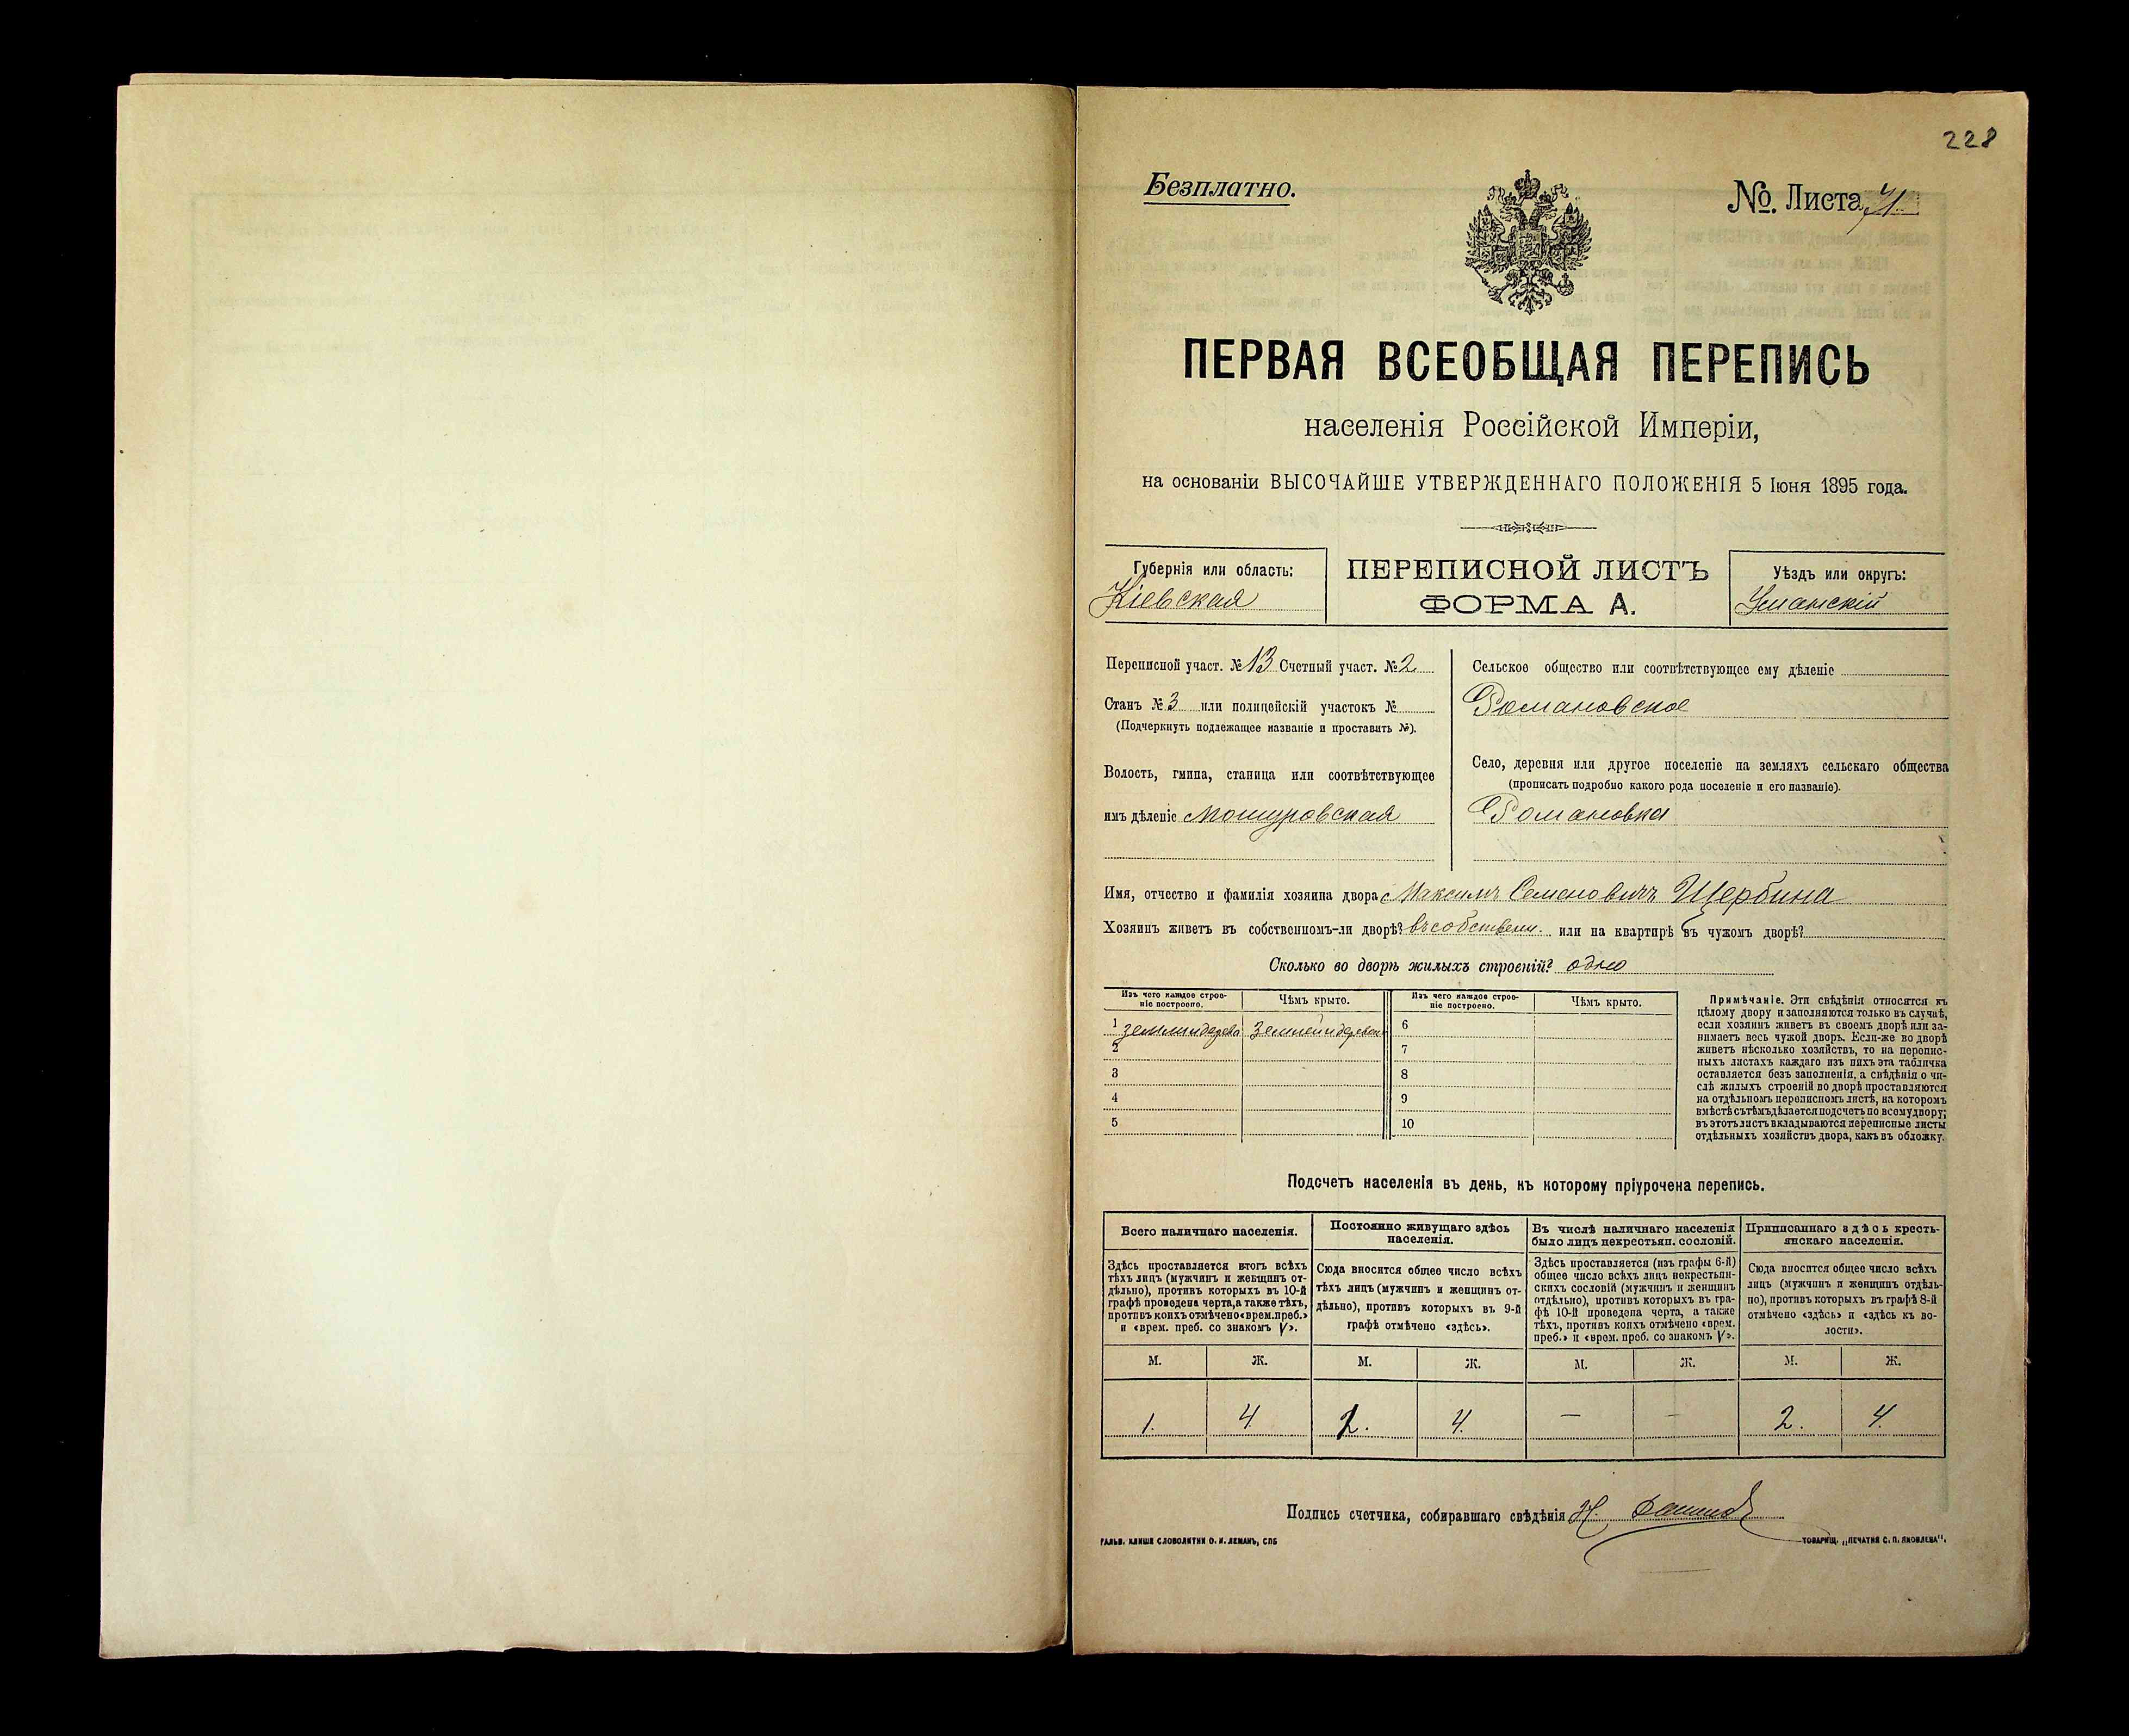 228
Безплатно.
№. Листа 41.
ПЕРВАЯ ВСЕОБЩАЯ ПЕРЕПИСЬ
населенія Россійской Имперіи,
на основаніи ВЫСОЧАЙШЕ УТВЕРЖДЕННАГО ПОЛОЖЕНІЯ 5 Іюня 1895 года.
Губернія или область:
Кіевская
ПЕРЕПИСНОЙ ЛИСТЪ
ФОРМА А.
Уѣздъ или округъ:
Уманскій
Переписной участ. № 13 Счетный участ. № 2
Станъ № 3 или полицейскій участокъ №
(Подчеркнуть подлежащее названіе и проставить №).
Волость, гмина, станица или соотвѣтствующее
имъ дѣленіе Мошуровская
Сельское общество или соотвѣтствующее ему дѣленіе
Романовское
Село, деревня или другое поселеніе на земляхъ сельскаго общества
(прописать подробно какого рода поселеніе и его названіе).
Романовка
Имя, отчество и фамилія хозяина двора Максимъ Семеновичъ Щербина
Хозяинъ живетъ въ собственномъ-ли дворѣ? въ собственн. или на квартирѣ въ чужомъ дворѣ?
Сколько во дворѣ жилыхъ строеній? одно
Изъ чего каждое строе-
ніе построено.
Чѣмъ крыто.
Изъ чего каждое строе-
ніе построено.
Чѣмъ крыто.
1 земли и дерева
Землей и деревом
6
2
7
3
8
4
9
5
10
Примѣчаніе. Эти свѣдѣнія относятся къ
цѣлому двору и заполняются только въ случаѣ,
если хозяинъ живетъ въ своемъ дворѣ или за-
нимаетъ весь чужой дворъ. Если-же во дворѣ
живетъ нѣсколько хозяйствъ, то на перепис-
ныхъ листахъ каждаго изъ нихъ эта табличка
оставляется безъ заполненія, а свѣдѣнія о чи-
слѣ жилыхъ строеній во дворѣ проставляются
на отдѣльномъ переписномъ листѣ, на которомъ
вмѣстѣ съ тѣмъ дѣлается подсчетъ по всему двору;
въ этотъ листъ вкладываются переписные листы
отдѣльныхъ хозяйствъ двора, какъ въ обложку.
Подсчетъ населенія въ день, къ которому пріурочена перепись.
Всего наличнаго населенія.
Здѣсь проставляется итогъ всѣхъ
тѣхъ лицъ (мужчинъ и женщинъ от-
дѣльно), противъ которыхъ въ 10-й
графѣ проведена черта, а также тѣхъ,
противъ коихъ отмѣчено «врем. преб.»
и «врем. преб. со знакомъ V».
Постоянно живущаго здѣсь
населенія.
Сюда вносится общее число всѣхъ
тѣхъ лицъ (мужчинъ и женщинъ от-
дѣльно), противъ которыхъ въ 9-й
графѣ отмѣчено «здѣсь».
Въ числѣ наличнаго населенія
было лицъ некрестьян. сословій.
Здѣсь проставляется (изъ графы 6-й)
общее число всѣхъ лицъ некрестьян-
скихъ сословій (мужчинъ и женщинъ
отдѣльно), противъ которыхъ въ гра-
фѣ 10-й проведена черта, а также
тѣхъ, противъ коихъ отмѣчено «врем.
преб.» и «врем. преб. со знакомъ V».
Приписаннаго здѣсь кресть-
янскаго населенія.
Сюда вносится общее число всѣхъ
лицъ (мужчинъ и женщинъ отдѣль-
но), противъ которыхъ въ графѣ 8-й
отмѣчено «здѣсь» и «здѣсь къ во-
лости».
М. Ж. М. Ж. М. Ж. М. Ж.
1. 4 2. 4. — - 2. 4.
Подпись счетчика, собиравшаго свѣдѣнія Н.
ГАЛЬВ. КЛИШЕ СЛОВОЛИТНИ О. И. ЛЕМАНЪ, СПБ
ТОВАРИЩ. „ПЕЧАТНЯ С. П. ЯКОВЛЕВА".